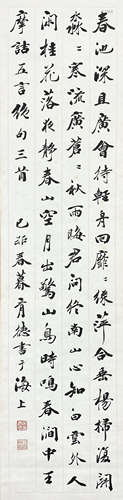 春池深且廣會待輕舟回靡〻綠萍合垂楊掃復開
淼〻寒流廣蒼〻秋雨晦君問終南山心知白雲外人
閒桂花落夜靜春山空月出驚山鳥時鳴春澗中王
摩詰五言絕句三首 己卯春暮育德書于海上